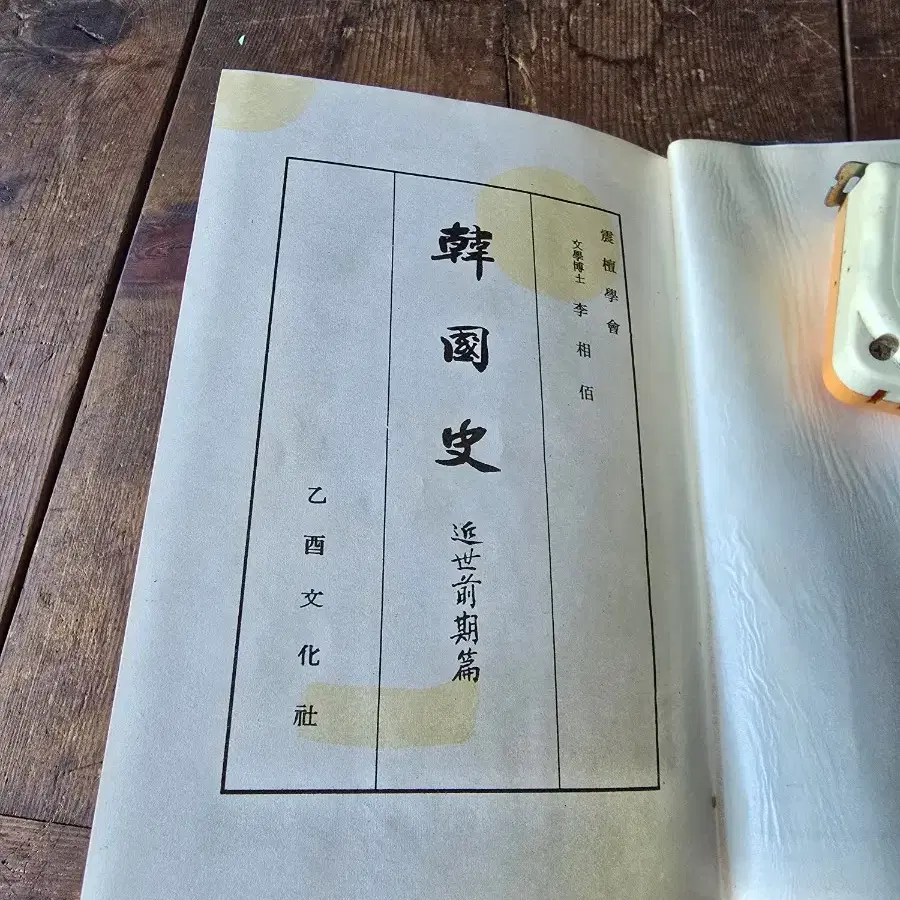 震檀學會
文學博士 李相佰
韓國史 近世前期篇
乙酉文化社